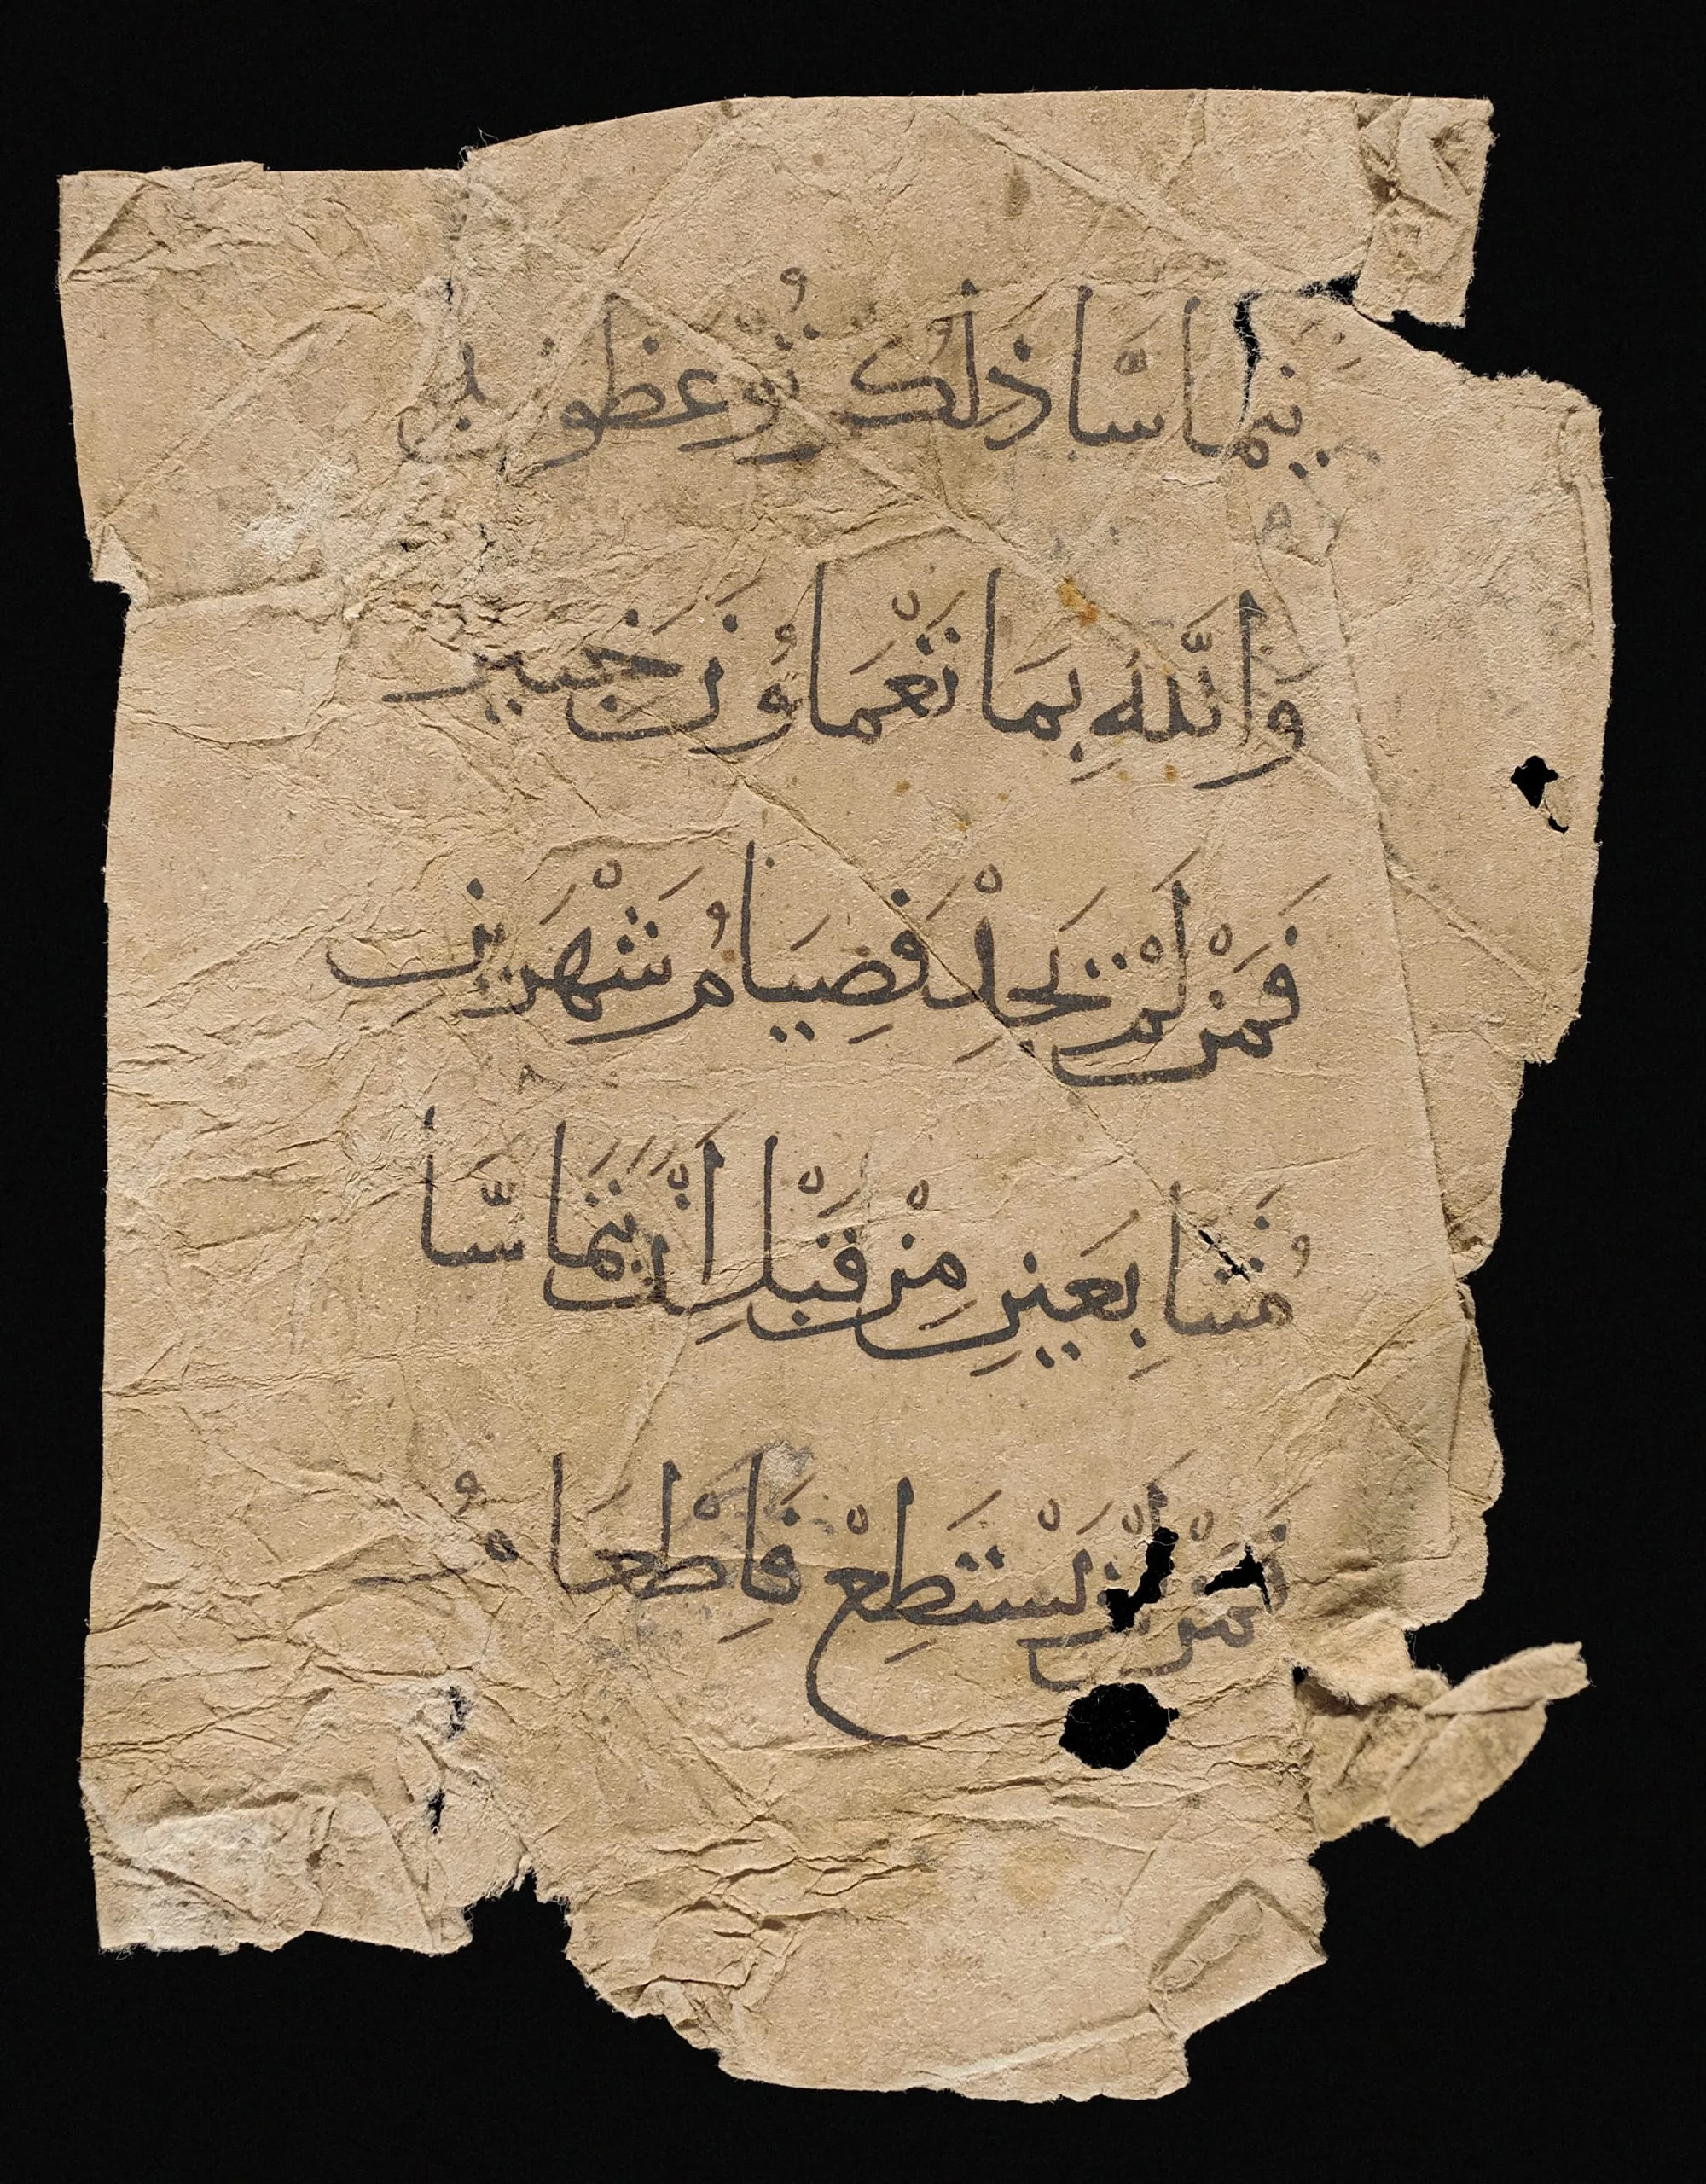 يتماسّا ذلكم تُوعظون به
وَاللّهُ بِمَا تَعْمَلُونَ خَبير
فَمَنْ لَمْ يَجِدْ فَصِيَامُ شَهْرَيْن
مُتَتَابِعَينِ مِنْ قَبْلِ اَنْ يَتَمَاسَّا
فَمَنْ لَمْ يَسْتَطِعْ فَاِطْعَامُ